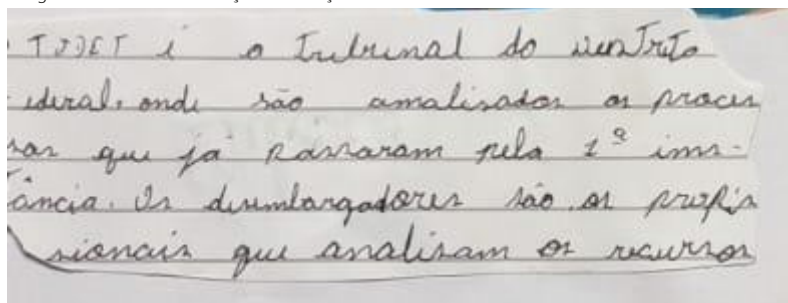 TJDFT é o Tribunal do
ederal, onde são amalisados os proces
sos que já passaram pela 1ª ins-
tância. Os desembargadores são os profis
sionais que analisam os recursos